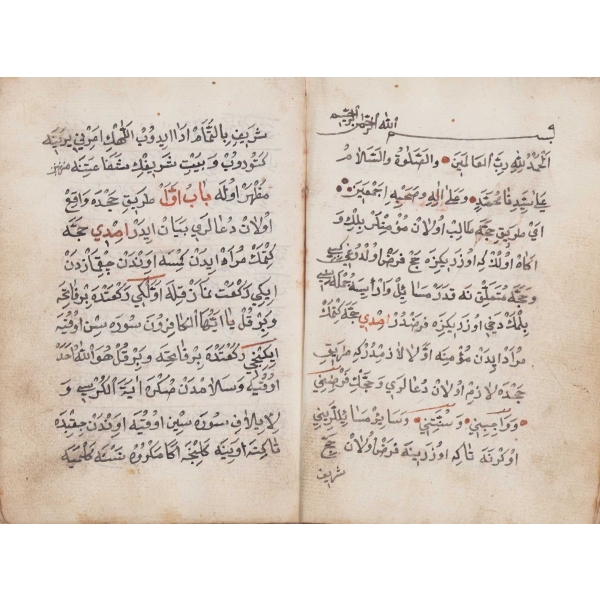 بسم الله الرحمن الرحيم
الحمد لله رب العالمين والصلوة والسلام
على سيدنا محمد وعلى اله وصحبه اجمعين
اى طريق حجه طالب اولان مؤمنلر بلك و
اكاه اولك كه اوزريكزه حج فرض اولدغى كبى
وحجه متعلق نه قدر مسائل وار ايسه جمله سى
بلمك دخى اوزريكزه فرضدر امدى حجه كتمك
مراد ايدن مؤمنه اولا لازمدر كه طريق
حجده لازم اولان دعالرى وحجك فرضنى
وواجبنى وسنتنى وسائر مسائللرينى
اوكرنه تاكه اوزرينه فرض اولان حج
شريف
شريفى بالتمام ادا ايدوب اللهك امرنى يرينه
كتوروب وبيت شريفك شفاعتنه
مظهر اوله باب اول طريق حجده واقع
اولان دعالرى بيان ايدر امدى حجه
كتمك مراد ايدن كمسه اوندن چقازدن
ايكى ركعت نماز قيله اولكى ركعتده بر فاتحه
وبر قل يا ايها الكافرون سوره سين اوقيه
ايكنجى ركعتده بر فاتحه وبر قل هو الله احد
اوقيه وسلامدن صكره اية الكرسى و
لايلاف سوره سين اوقيه اوندن چيقده
تاكه اوينه كلنجه اكا مكروه نسنه كلميه